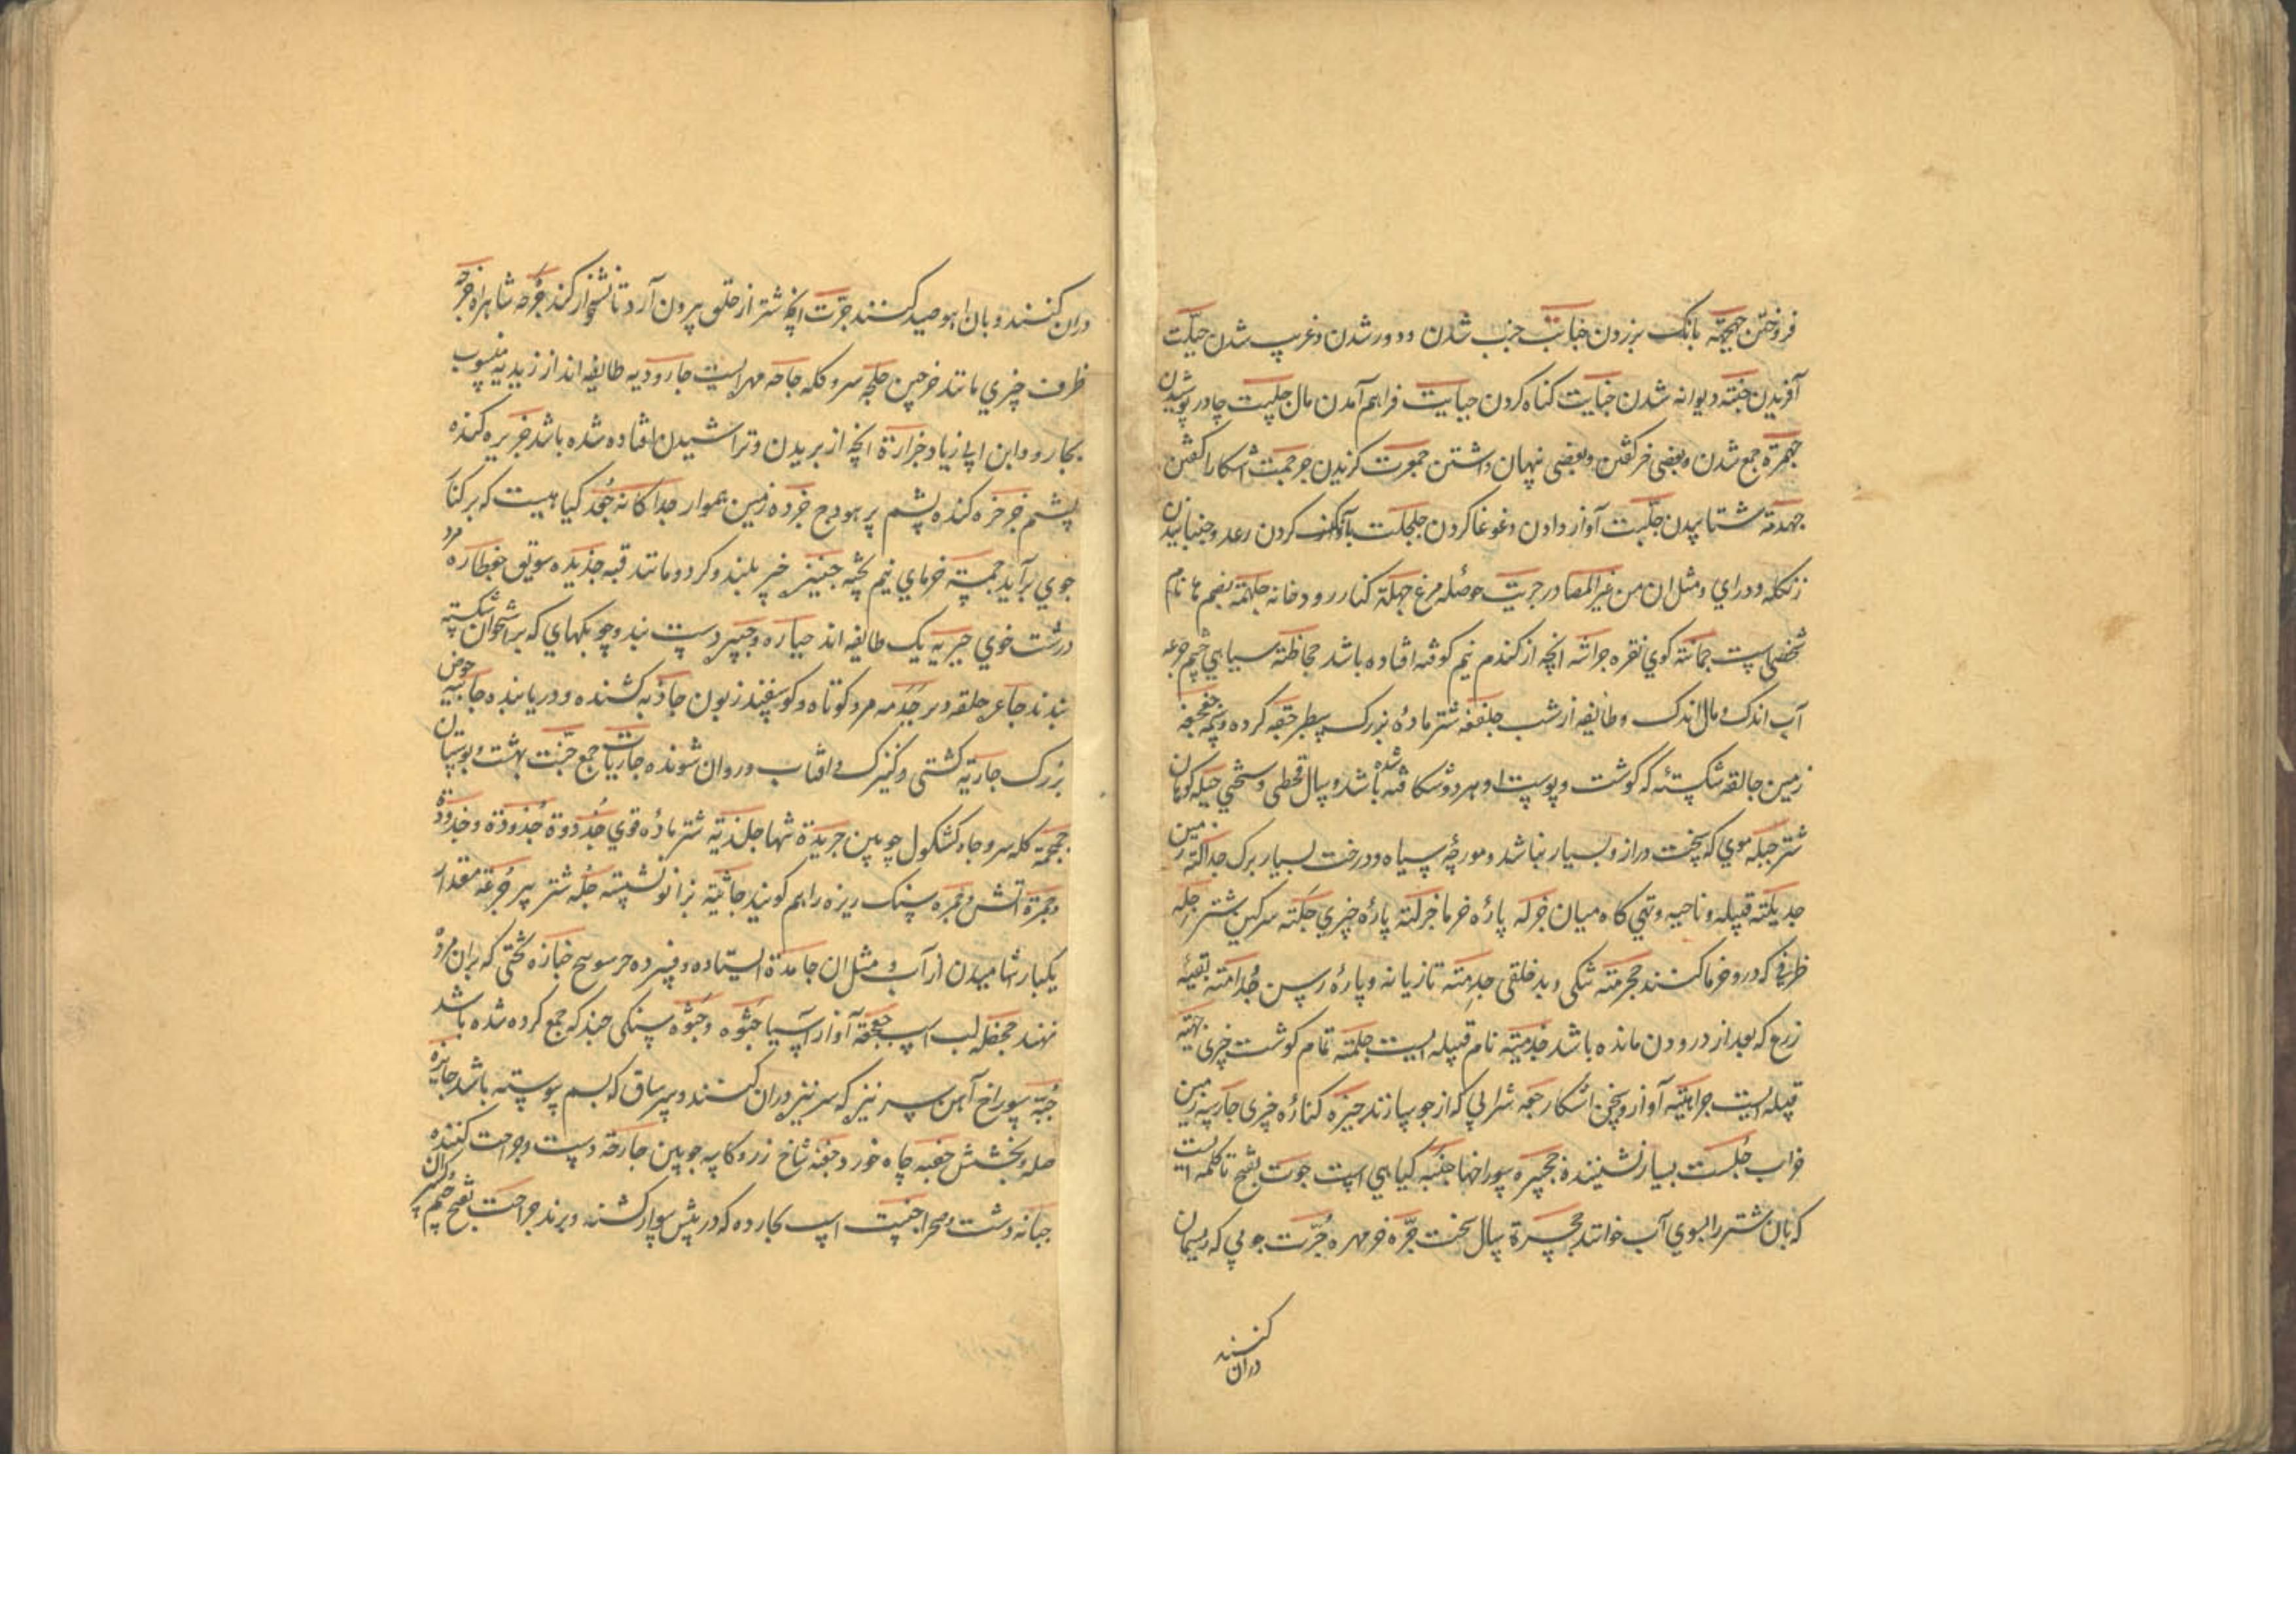 فروختن جهجهة بانک بزردن جنابت جنب شدن و دور شدن و غریب شدن جبلّت
آفریدن جنة دیوانه شدن جنایت کناه کردن جبایت فراهم آمدن مال جلبیت چادر پوشیدن
جمهرة جمع شدن و بعضی خبر کفتن و بعضی نهان داشتن جمهرت کزیدن جرجمت اشکارا کفتن
جهدمة شتابیدن جلّبت آواز دادن و غوغا کردن جلجلت بآواز کردن رعد و جنبانیدن
زنکله و درای و مثل ان من غیر المصادر جریت حوصله مرغ جهلة کنار رودخانه جلهمة بضم ها نام
شخصی است جمانة کوی نقره جراشه انچه از کندم نیم کوفته افتاده باشد جحاظة سیاهی چشم جرعه
آب اندک و مال اندک و طائفه از شب جلنفعة شتر ماده بزرک سطبر حقه کرده و پیمه جعجعة
زمین جالقه شکستهٔ که کوشت و پوست او بهر دو شکافته شده باشد و سال قحطی و سختی جبله کوهان
شتر جبله موی که سخت دراز و بسیار نباشد و مورچهٔ سیاه و درخت بسیار برک جدالة زمین
جدیلة قبیله و ناحیه و تهی کاه میان جزله پارهٔ خرما جزلة پارهٔ چیزی جلّة سرکین شتر جله
ظرفی که درو خرما کنند جحرمة تنکی و بد خلقی جذمة تازیانه و پارهٔ رسن جُدامة بقیهٔ
زرع که بعد از درودن مانده باشد جذمیة نام قبیله ایست جلمة تمام کوشت چیزی جهنیة
قبیله ایست جراهیة آواز و سخن اشکار جعه شرابی که از جو سازند جیزه کنارهٔ چیزی جاربه زمین
خراب جُلست بسیار نشیننده جحره سوراخها جنبه کیاهی است جوت بفتح تا کلمه ایست
که بان شتر را بسوی آب خوانند جحرة سال سخت جرّه خرمهره جُرّت چوبی که ریسمان
دران کنند
دران کنند و بان اهو صید کنند جرّت انچه شتر از حلق بیرون آرد تا نشخوار کند جُرجه شاهراه جرجه
ظرف چیزی مانند خرجین جلجه سر و کله جاحه مهر ایست جارودیه طایفه اند از زیدیه منسوب
بجارود ابن ابی زیاد جزازة انچه از بریدن و تراشیدن افتاده شده باشد جزیره کنده
پشم جزجزه کنده پشم بر هودج جرده زمین هموار جداکانه جُعد کیاهیست که بر کنار
جوی برآید جمسة خرمای نیم پخته جنبز چیز بلند و کرد و مانند قبه جذیده سویق جعظاره مرد
درشت خوی جبریه یک طایفه اند جباره و جبیره دست بند و چوبکهای که بر استخوان شکسته
بندند جاعره حلقه دبر جَدَمه مرد کوتاه و کوسفند زبون جاذبه کشنده و دریابنده جابیه حوض
بزرک جاریة کشتی و کنیزک و افتاب و روان شونده جاریات جمع جنّت بهشت و بوستان
جمجمة کله سر و چاه کشکول چوبین جریدة تنها جلذیة شتر مادهٔ قوی جُذوة جَذوة و جِذوة
و جمرة اتش و جمره سنک ریزه را هم کویند جاثیة بزانو نشسته جلّه شتر پیر جُرعة مقدار
یکبار اشامیدن از آب و مثل ان جامدة ایستاده و فسرده جنازه تختی که بران مرده
نهند جحفله لب اسب جعجعة آواز آسیا جُثوه و جَثوه سنکی چند که جمع کرده شده باشد
جُبّة سوراخ آهن سر نیزه که سر نیزه دران کنند و سر ساق که بسم پیوسته باشد جایزه
صله و بخشش جفنه چاه خورد جفنه شاخ زر و کاسه چوبین جارحة دست و جراحت کننده
جبّانه دشت و صحرا جنیبت اسب بکار رده که در پیش سوار کشند و برند جراحت بفتح جیم و کسر ان